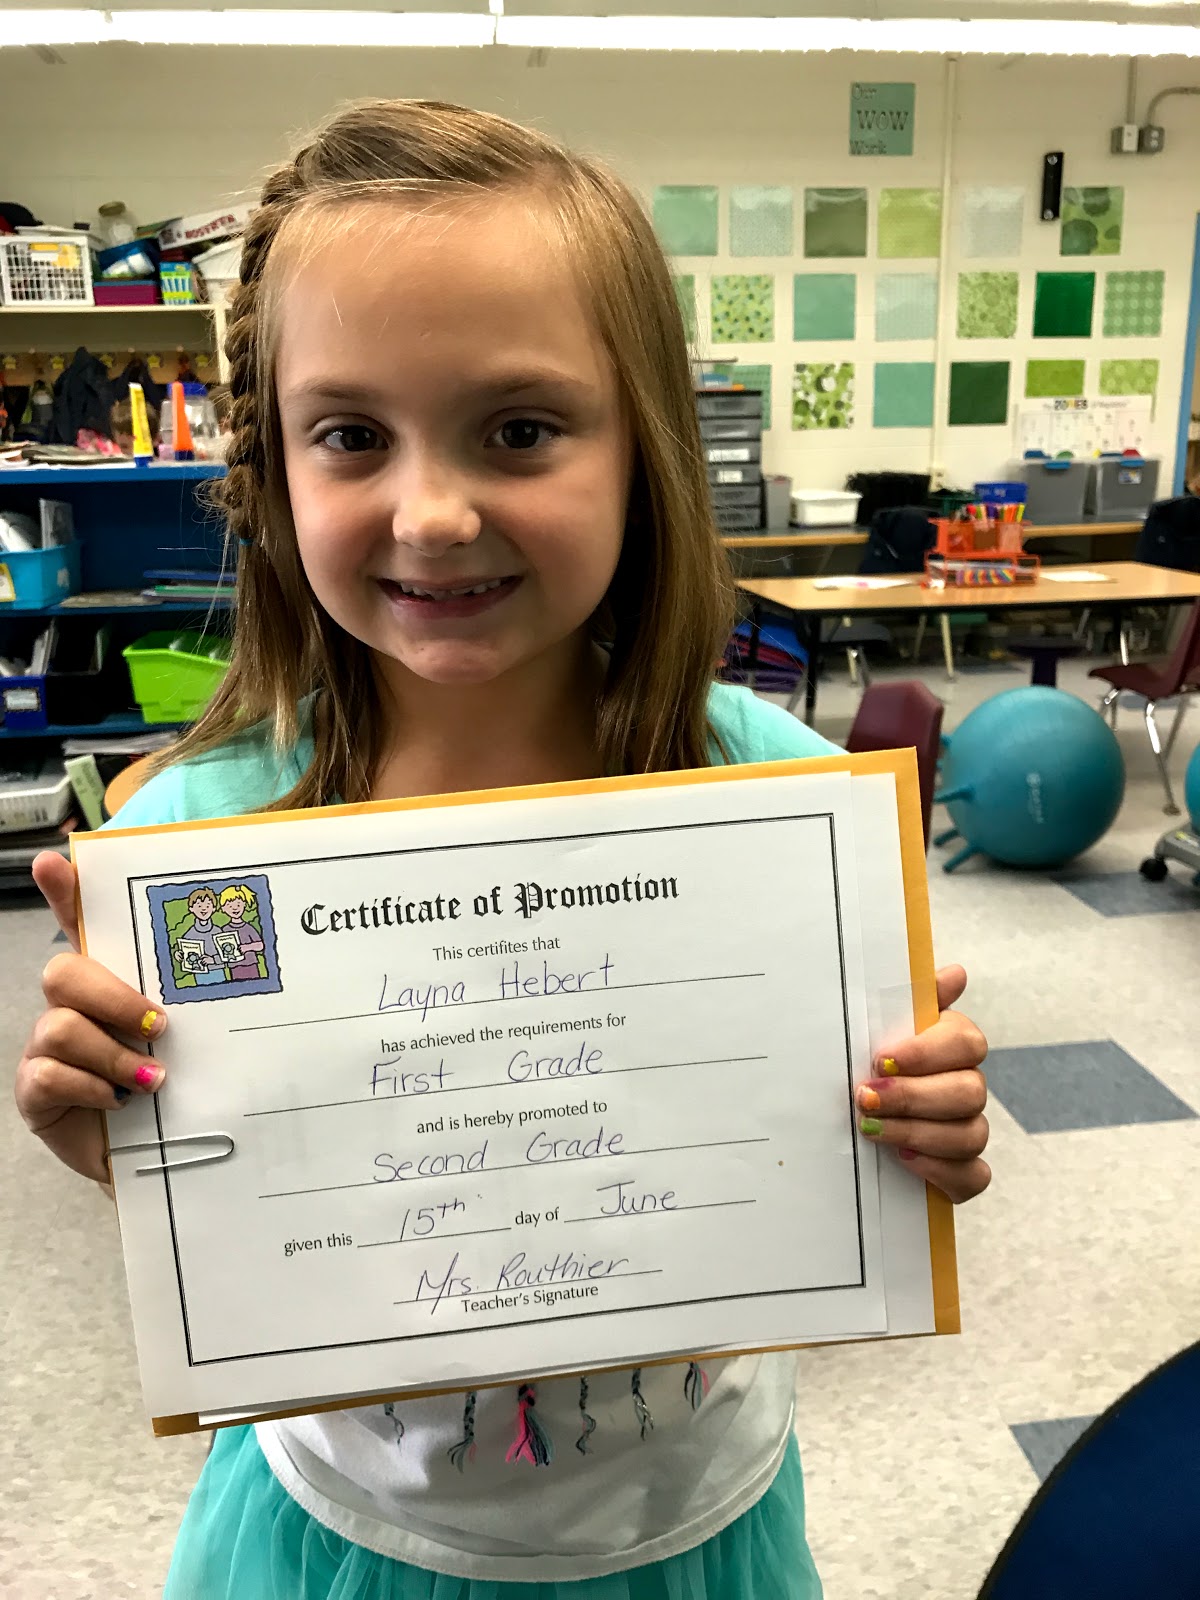 Our
WOW
Work
ZONES
Certificate of Promotion
This certifites that
Layna Hebert
has achieved the requirements for
First Grade
and is hereby promoted to
Second Grade
given this 15th day of June
Mrs. Routhier
Teacher's Signature